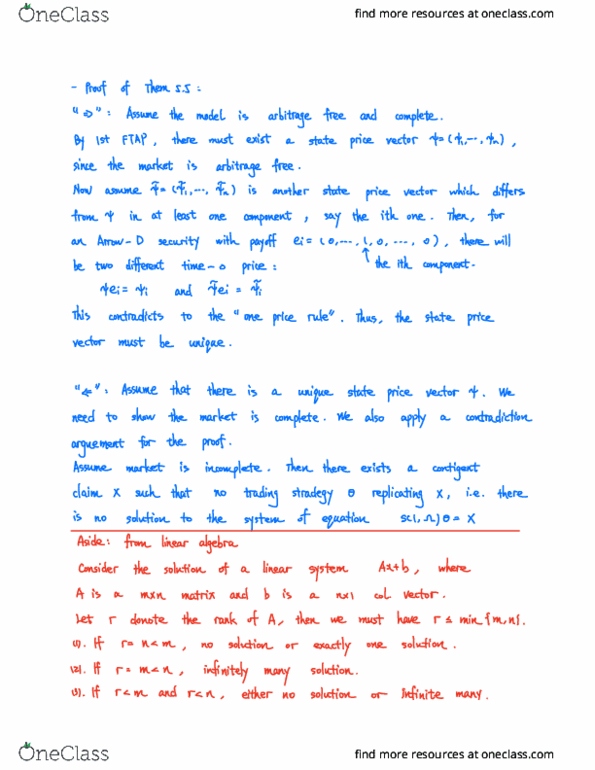 OneClass
find more resources at oneclass.com
- Proof of Them 5.5 :
"⇒" : Assume the model is arbitrage free and complete.
By 1st FTAP, there must exist a state price vector ψ=(ψ₁,···,ψₙ),
since the market is arbitrage free.
Now assume ψ̃=(ψ̃₁,···,ψ̃ₙ) is another state price vector which differs
from ψ in at least one component, say the ith one. Then, for
an Arrow-D security with payoff eᵢ=(0,···,1,0,···,0), there will
be two different time-0 price: ↑ the ith component.
ψeᵢ=ψᵢ and ψ̃eᵢ=ψ̃ᵢ
This contradicts to the "one price rule". Thus, the state price
vector must be unique.
"⇐" : Assume that there is a unique state price vector ψ. We
need to show the market is complete. We also apply a contradiction
arguement for the proof.
Assume market is incomplete. Then there exists a contigent
claim X such that no trading stradegy θ replicating X, i.e. there
is no solution to the system of equation S(1,Ω)θ=X
Aside: from linear algebra
Consider the solution of a linear system Ax+b, where
A is a m×n matrix and b is a n×1 col vector.
Let r denote the rank of A, then we must have r≤min{m,n}.
(1). If r=n<m, no solution or exactly one solution.
(2). If r=m<n, infinitely many solution.
(3). If r<m and r<n, either no solution or infinite many.
OneClass
find more resources at oneclass.com